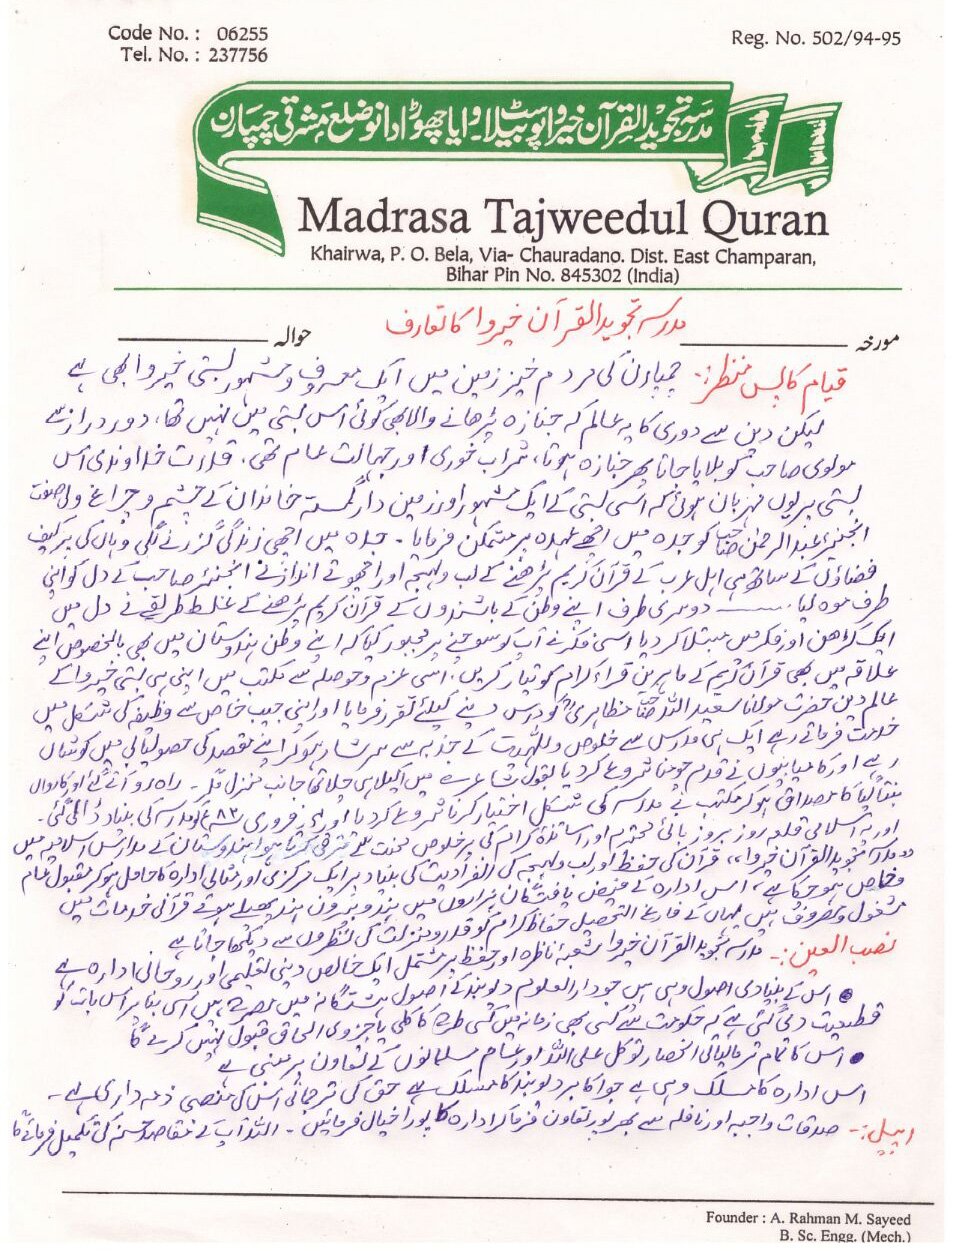 Code No. : 06255
Tel. No. : 237756
Reg. No. 502/94-95
مدرسہ تجوید القرآن خیروا پوسٹ بیلا۔ وایا چھوڑادانو ضلع مشرقی چمپارن
Madrasa Tajweedul Quran
Khairwa, P. O. Bela, Via- Chauradano. Dist. East Champaran,
Bihar Pin No. 845302 (India)
مورخہ حوالہ
مدرسہ تجوید القرآن خیروا کا تعارف
قیام کا پس منظر:- چمپارن کی مردم خیز زمین میں ایک معروف و مشہور بستی خیروا بھی ہے
لیکن دین سے دوری کا یہ عالم کہ جنازہ پڑھانے والا بھی کوئی اس بستی میں نہیں تھا، دور دراز سے
مولوی صاحب کو بلایا جاتا پھر جنازہ ہوتا، شراب خوری اور جہالت عام تھی، قدرت خداوندی اس
بستی پر یوں مہربان ہوئی کہ اسی بستی کے ایک مشہور اور زمین دار گھرانہ خاندان کے چشم و چراغ ولی صفت
انجینئر عبدالرحمٰن صاحب کو جدہ میں اچھے عہدہ پر متمکن فرمایا۔ جدہ میں اچھی زندگی گزرنے لگی وہاں کی پرکیف
فضاؤں کے ساتھ ہی اہل عرب کے قرآن کریم پڑھنے کے لب ولہجہ اور اچھوتے انداز نے انجینئر صاحب کے دل کو اپنی
طرف موہ لیا، دوسری طرف اپنے وطن کے باشندوں کے قرآن کریم پڑھنے کے غلط طریقے نے دل میں
ایک کڑھن اور فکر میں مبتلا کر دیا اسی فکر نے آپ کو سوچنے پر مجبور کیا کہ اپنے وطن ہندوستان میں بھی بالخصوص اپنے
علاقہ میں بھی قرآن کریم کے ماہرین قراء کرام کو تیار کریں، اسی عزم و حوصلہ سے مکتب میں اپنی ہی بستی خیروا کے
عالم دین حضرت مولانا سعید اللہ صاحب مظاہری کو درس دینے کیلئے مقرر فرمایا اور اپنی جیب خاص سے وظیفہ کی شکل میں
خدمت فرماتے رہے ایک ہی مدرس سے خلوص و للہیت کے جذبہ سے سرشار ہو کر اپنے مقصد کی حصولیابی میں کوشاں
رہے اور کامیابیوں نے قدم چومنا شروع کر دیا بقول شاعر میں اکیلا ہی چلا تھا جانب منزل مگر۔ راہ رو آتے گئے اور کارواں
بنتا گیا کا مصداق ہو کر مکتب نے مدرسہ کی شکل اختیار کرنا شروع کر دیا اور فروری ۸۳ء کو مدرسہ کی بنیاد ڈالی گئی۔
اور یہ اسلامی قلعہ روز بروز بانی محترم اور اساتذہ کرام کی پرخلوص محنت سے ترقی کرتا ہوا ہندوستان کے مدارس اسلامیہ میں
"مدرسہ تجوید القرآن خیروا"، قرآن کی حفظ اور لب ولہجہ کی انفرادیت کی بنیاد پر ایک مرکزی اور مثالی ادارہ کا حامل ہو کر مقبول عام
و خاص ہو چکا ہے، اس ادارہ کے فیض یافتگان ہزاروں میں ہند و بیرون ہند پھیلے ہوئے قرآنی خدمات میں
مشغول و مصروف ہیں یہاں کے فارغ التحصیل حفاظ کرام کو قدر و منزلت کی نظروں سے دیکھا جاتا ہے
نصب العین:- مدرسہ تجوید القرآن خیروا شعبۂ ناظرہ اور حفظ پر مشتمل ایک خالص دینی تعلیمی اور روحانی ادارہ ہے
● اس کے بنیادی اصول وہی ہیں جو دارالعلوم دیوبند کے اصول ہشتگانہ میں مصرح ہیں اسی بنا پر اس بات کو
قطعیت دی گئی ہے کہ حکومت سے کسی بھی زمانہ میں کسی طرح کا کلی یا جزوی الحاق قبول نہیں کرے گا
● اس کا تمام تر مالیاتی انحصار توکل علی اللہ اور عام مسلمانوں کے تعاون پر مبنی ہے
اس ادارہ کا مسلک وہی ہے جو اکابر دیوبند کا مسلک ہے حق کی ترجمانی اس کی منصبی ذمہ داری ہے۔
اپیل:- صدقات واجبہ اور نافلہ سے بھرپور تعاون فرما کر ادارہ کا پورا خیال فرمائیں۔ اللہ آپ کے مقاصد حسنہ کی تکمیل فرمائے گا
Founder : A. Rahman M. Sayeed
B. Sc. Engg. (Mech.)